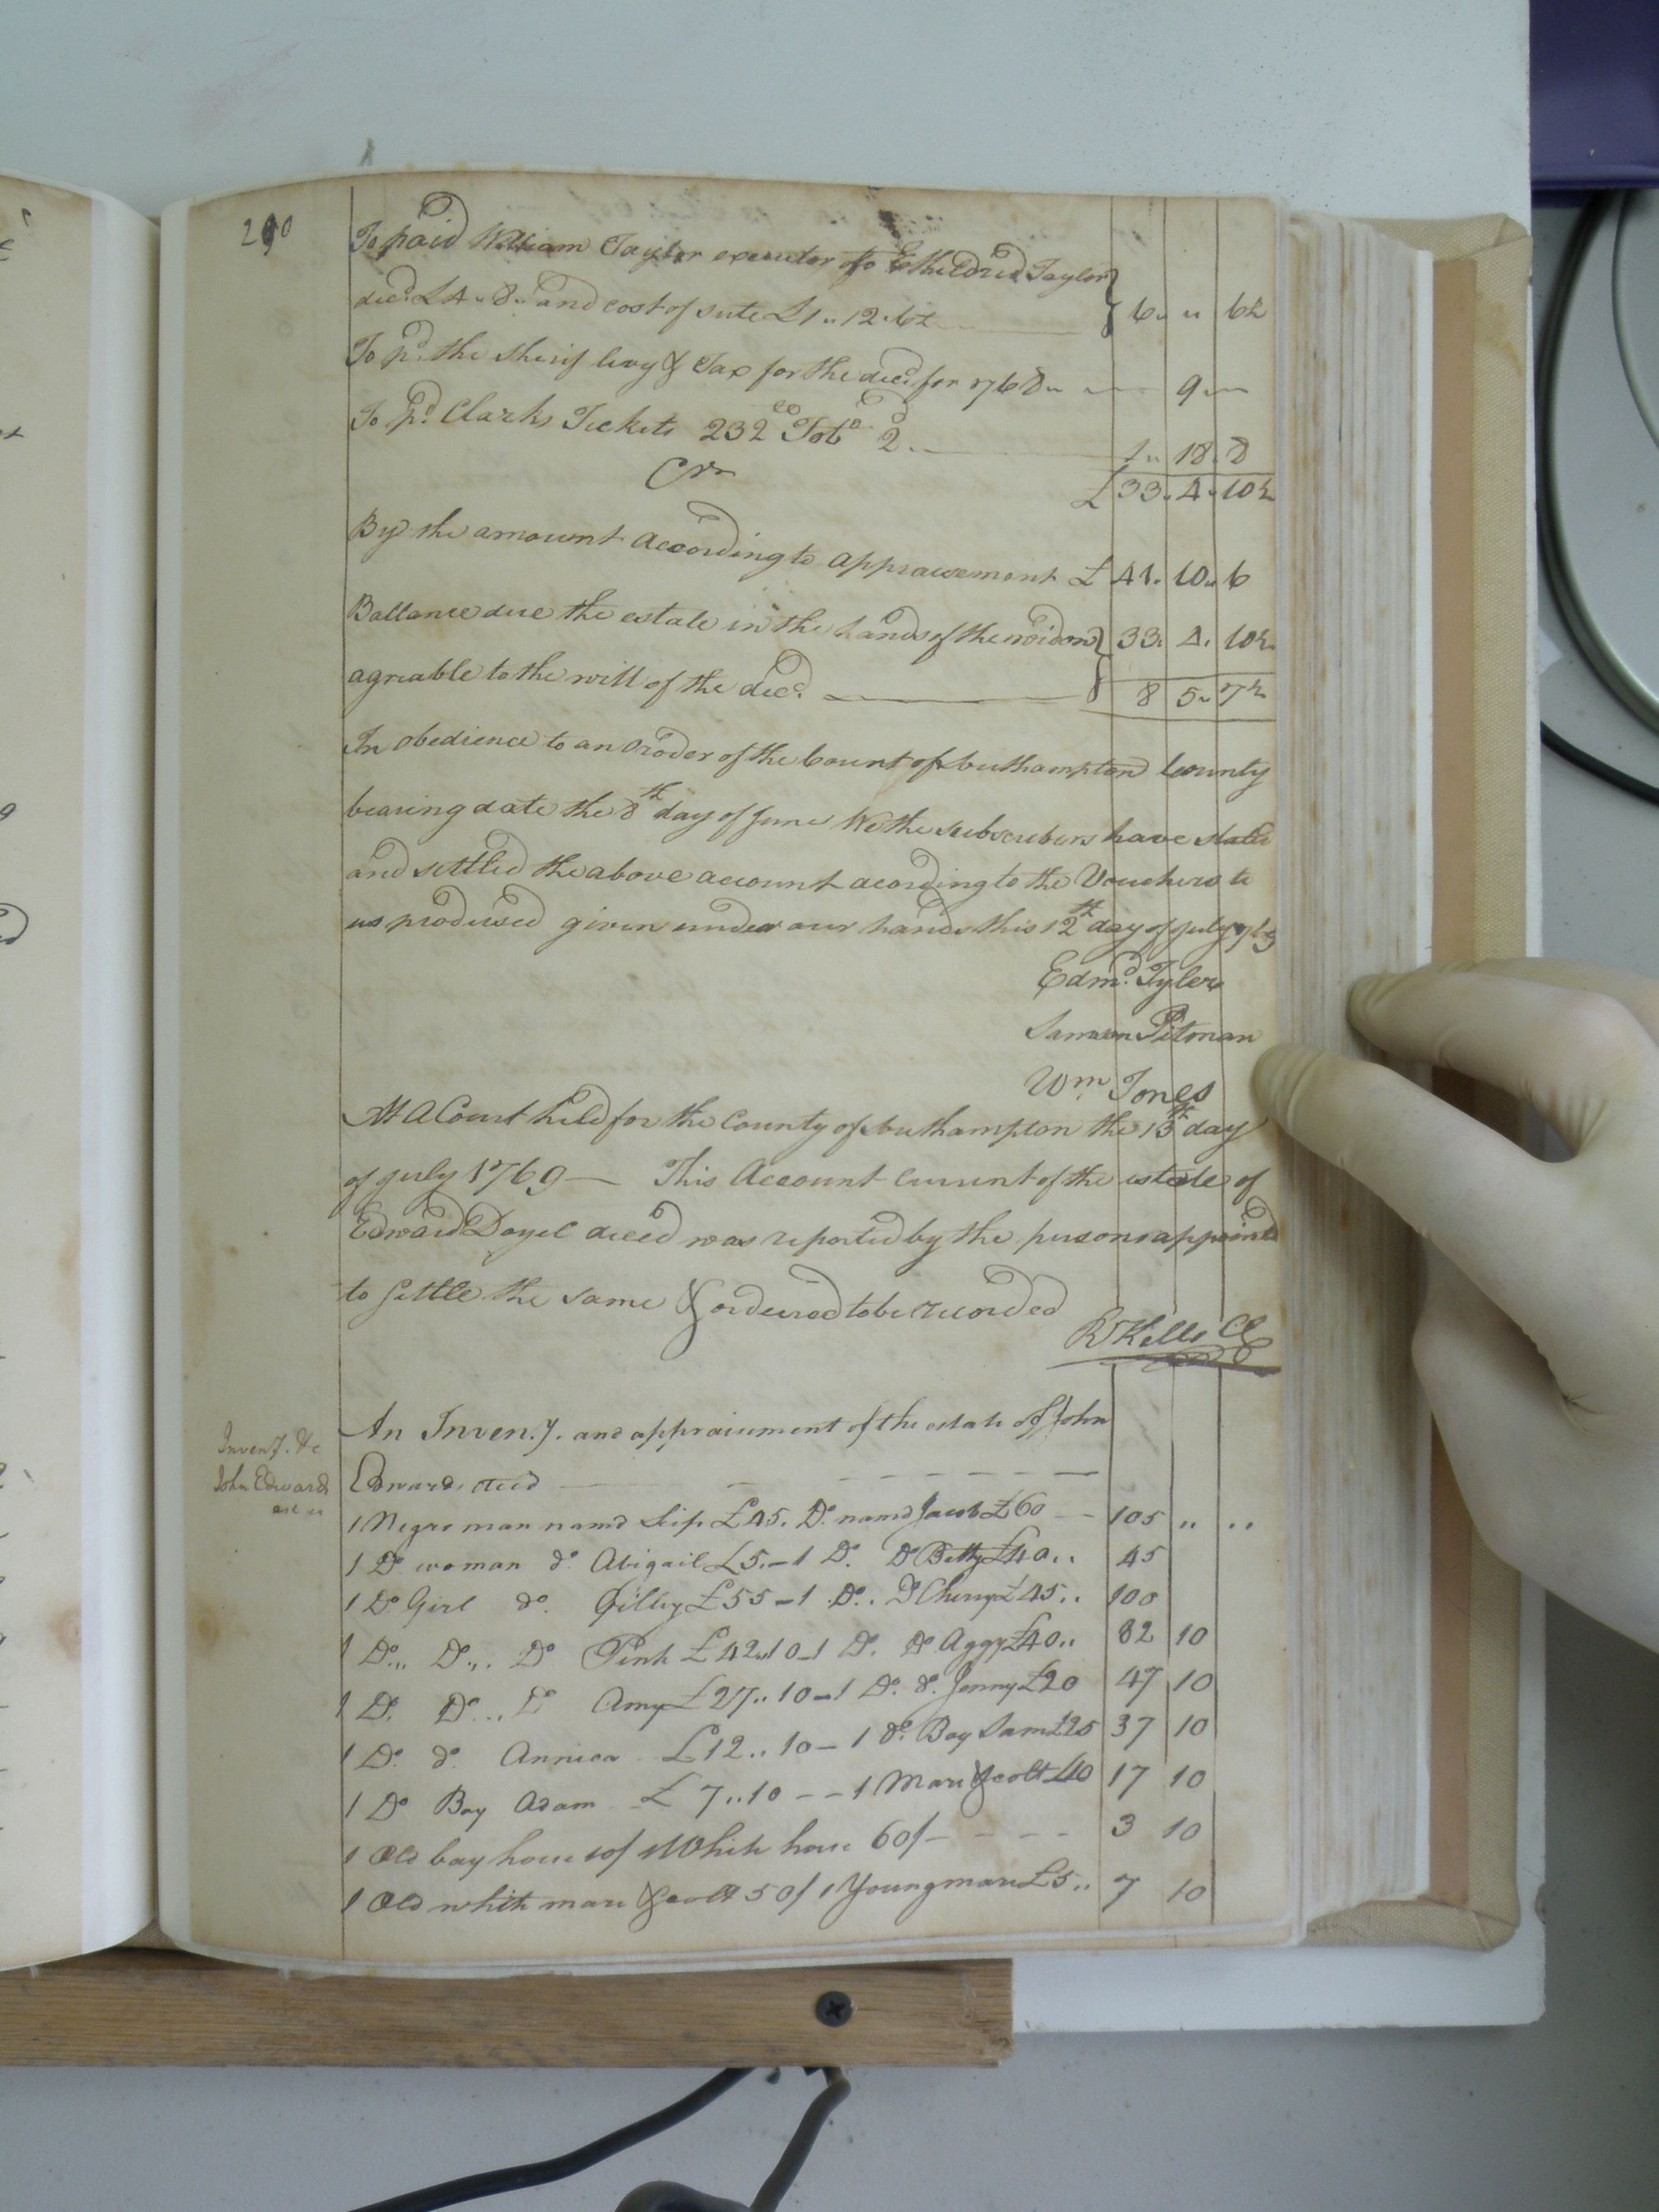 290
To paid William Taylor executor to Etheldred Taylor
decd. £4..8.. and cost of sute £1..12.6½ 6.. .. 6½
To pd. the sherif levy & Tax for the decd for 1768.. 9..
To pd. Clarks Tickets 232 lb Tobo. @ 2.. 1.. 18. 8
Cr. £33. 4. 10½
By the amount according to appraisement £ 41. 10.. 6
Ballance due the estate in the hands of the widow 33. 4. 10½
agreable to the will of the decd. 8 5.. 7½
In obedience to an Order of the Court of Southampton County
bearing date the 8th day of June We the subscribers have stated
and settled the above account acording to the Vouchers to
us prodused given under our hands this 12th day of july 1769
Edmd. Tyler
Samson Pitman
Wm. Jones
At a Court held for the County of Southampton the 13th day
of july 1769 — This Account Current of the estate of
Edward Doyel deced was reported by the persons appointd
to settle the same & ordered to be recorded
R Kello CC
Inven.y. &c
John Edwards
An Inven.y. and appraisment of the estate of John
Edwards deced
1 Negro man namd Scip £45. Do. namd Jacob £60 — 105 .. ..
1 Do. woman do. Abigail £5.–1 Do. Do Betty £40.. 45
1 Do. Girl do. £55–1 Do.. Do Cherry £45.. 100
1 Do.. Do.. Do Pink £42..10–1 Do. Do Aggy £40.. 82 10
1 Do. Do... Do Amy £27..10–1 Do. do. Jenny £20 47 10
1 Do. do. Annica £12..10–1 do. Boy Sam £25 37 10
1 Do Boy Adam £7..10––1 Mare & colt £10 17 10
1 Old bay horse 10/ 1 White horse 60/ – – – – 3 10
1 Old white mare & colt 50/ 1 Young mare £5.. 7 10